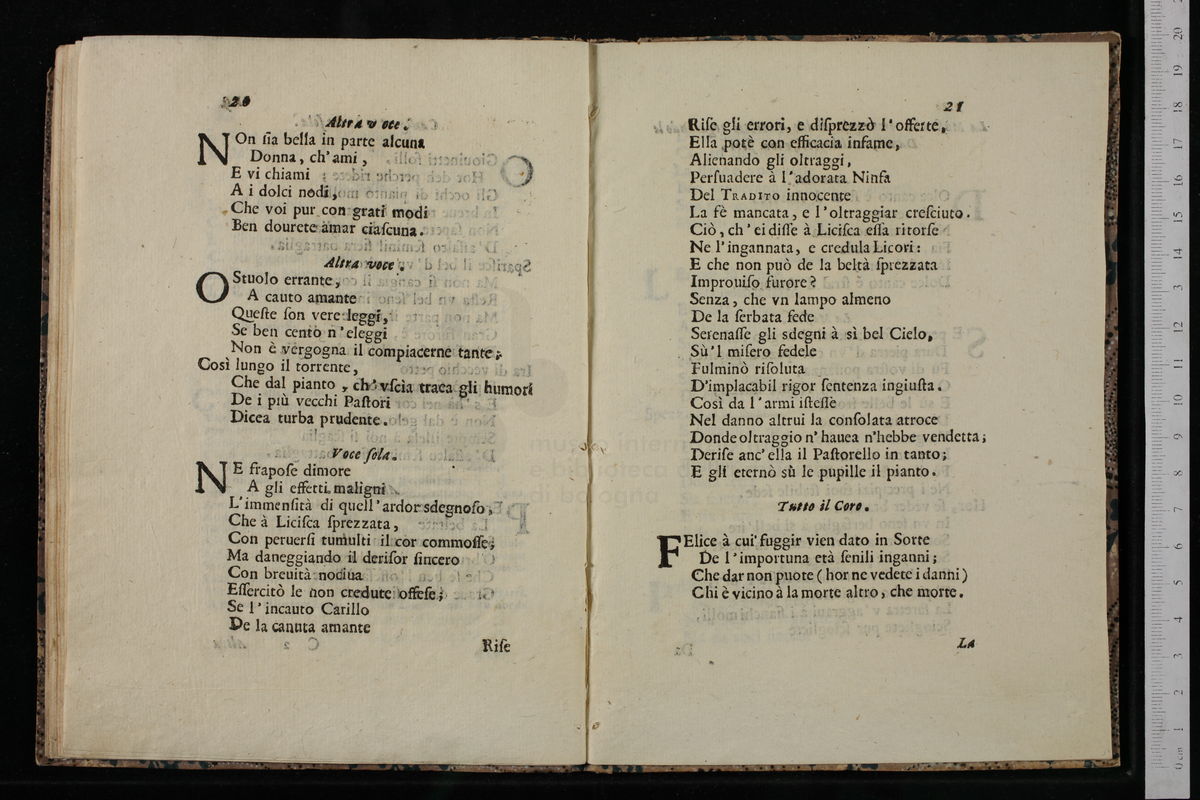 20
Altra voce.
NOn ſia bella in parte alcuna
Donna, ch'ami,
E vi chiami
A i dolci nodi,
Che voi pur con grati modi
Ben dourete amar ciaſcuna.
Altra voce.
O Stuolo errante,
A cauto amante
Queſte ſon vere leggi,
Se ben cento n'eleggi
Non è vergogna il compiacerne tante;
Così lungo il torrente,
Che dal pianto, ch'vſcìa traea gli humori
De i più vecchi Paſtori
Dicea turba prudente.
Voce ſola.
NE frapoſe dimore
A gli effetti maligni
L'immenſità di quell'ardor sdegnoſo,
Che à Liciſca ſprezzata,
Con peruerſi tumulti il cor commoſſe;
Ma daneggiando il deriſor ſincero
Con breuità nociua
Eſſercitò le non credute offeſe;
Se l'incauto Carillo
De la canuta amante
Riſe
21
Riſe gli errori, e diſprezzò l'offerte,
Ella potè con efficacia infame,
Alienando gli oltraggi,
Perſuadere à l'adorata Ninfa
Del TRADITO innocente
La fè mancata, e l'oltraggiar creſciuto.
Ciò, ch'ei diſſe à Liciſca eſſa ritorſe
Ne l'ingannata, e credula Licori:
E che non può de la beltà ſprezzata
Improuiſo furore?
Senza, che vn lampo almeno
De la ſerbata fede
Serenaſſe gli sdegni à sì bel Cielo,
Sù'l miſero fedele
Fulminò riſoluta
D'implacabil rigor ſentenza ingiuſta.
Così da l'armi iſteſſe
Nel danno altrui la conſolata atroce
Donde oltraggio n'hauea n'hebbe vendetta;
Deriſe anc'ella il Paſtorello in tanto;
E gli eternò sù le pupille il pianto.
Tutto il Coro.
FElice à cui fuggir vien dato in Sorte
De l'importuna età ſenili inganni;
Che dar non puote (hor ne vedete i danni)
Chi è vicino à la morte altro, che morte.
La